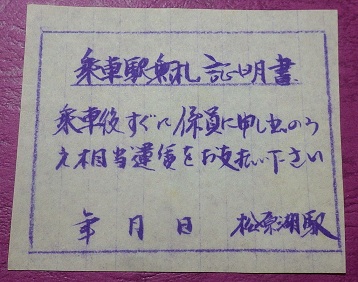 乗車駅乗札証明書
乗車後すぐに係員に申し出のう
え相当運賃をお支払い下さい
年 月 日 松原湖駅